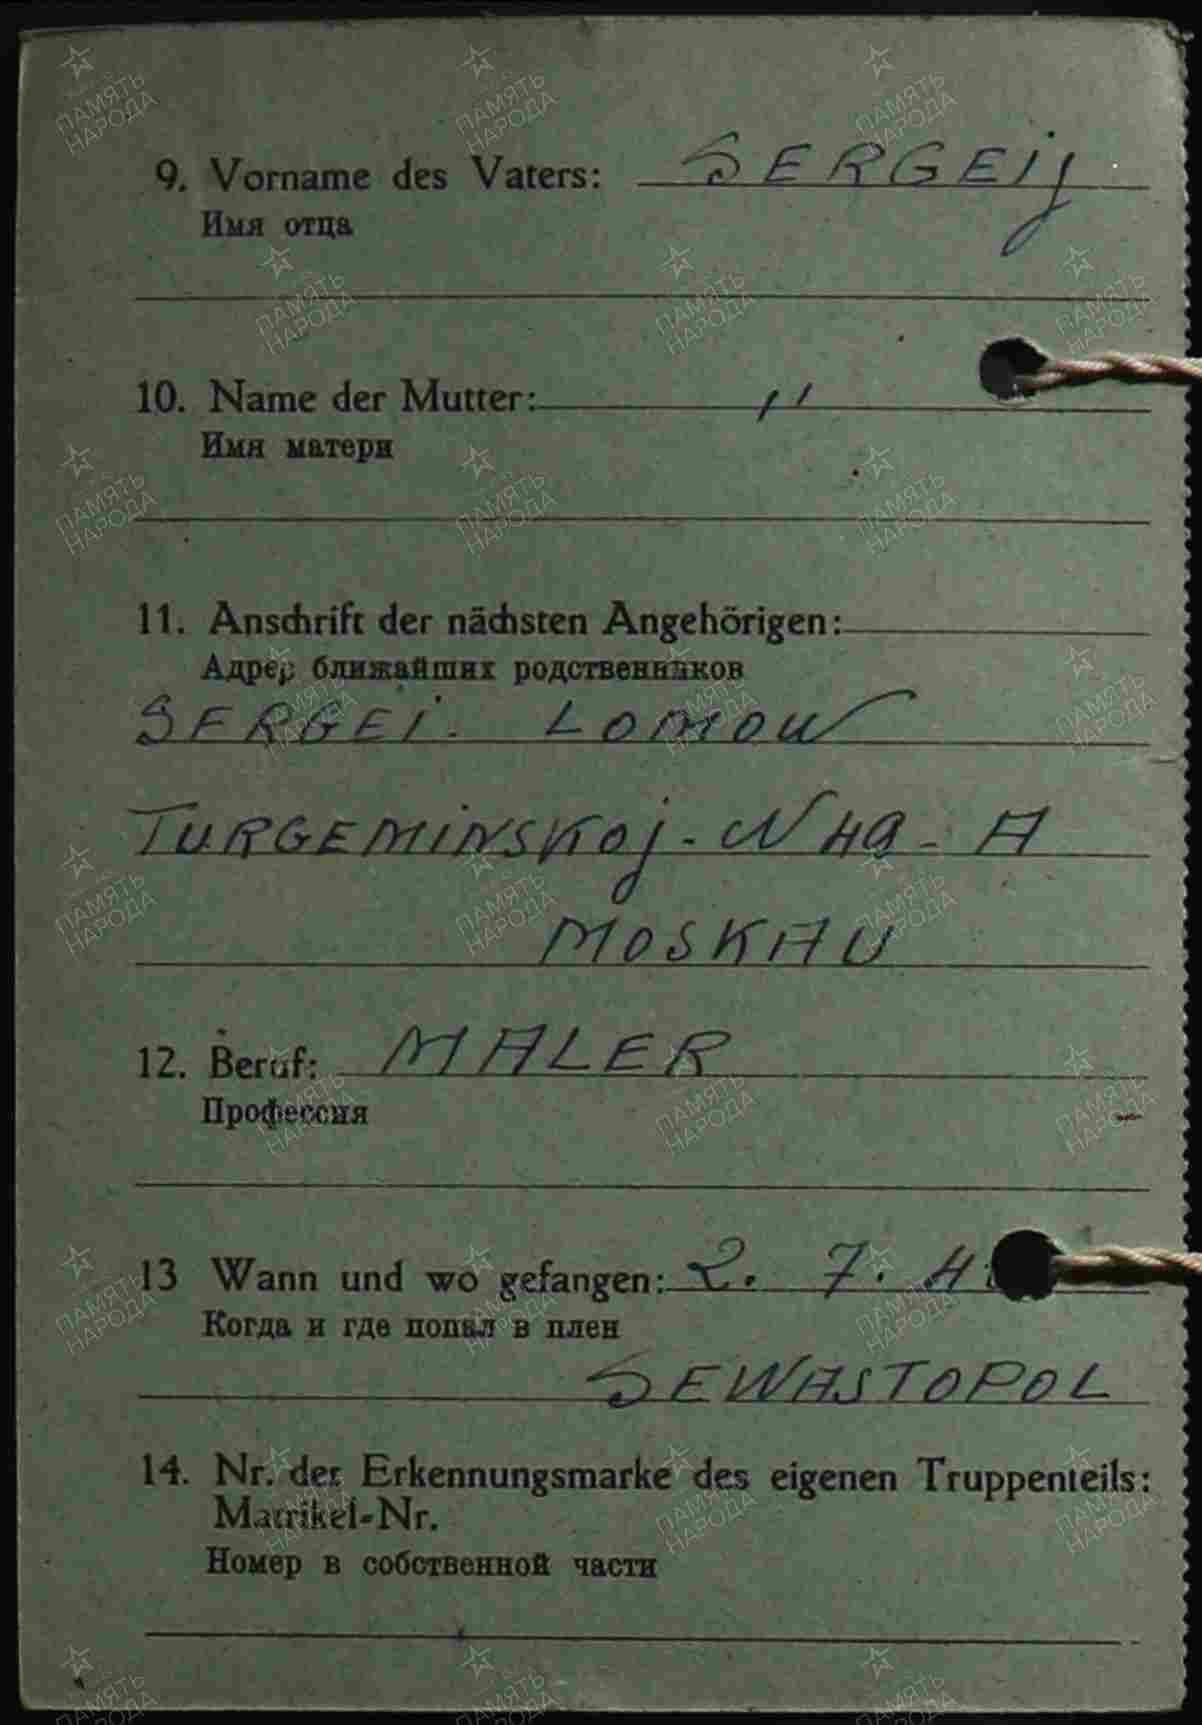 9. Vorname des Vaters: SERGEIJ
Имя отца
10. Name der Mutter: "
Имя матери
11. Anschrift der nächsten Angehörigen:
Адрес ближайших родственников
SERGEI. LOMOW
TURGEMINSKOJ - N 49 - A
MOSKAU
12. Beruf: MALER
Профессия
13 Wann und wo gefangen: 2. 7. 4
Когда и где попал в плен
SEWASTOPOL
14. Nr. der Erkennungsmarke des eigenen Truppenteils:
Matrikel-Nr.
Номер в собственной части
ПАМЯТЬ
НАРОДА